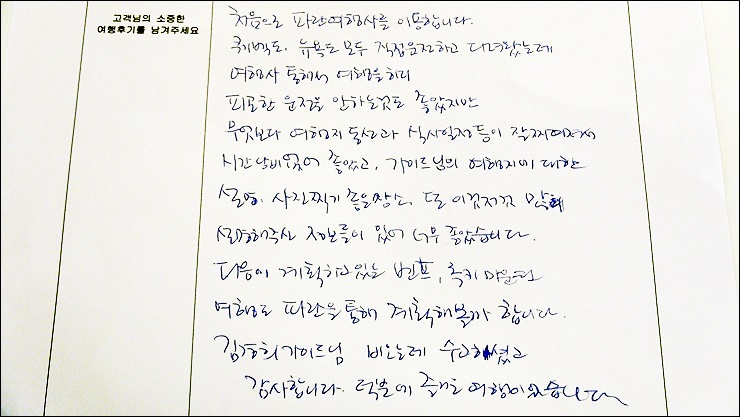 고객님의 소중한
여행후기를 남겨주세요
처음으로 파란여행사를 이용합니다.
퀘벡도, 뉴욕도 모두 직접운전하고 다녀왔는데
여행사 통해서 여행을하니
피곤한 운전을 안하는것도 좋았지만
무엇보다 여행지 동선과 식사일정등이 잘 짜여져서
시간낭비없어 좋았고, 가이드님의 여행지에 대한
설명, 사진찍기 좋은장소, 또 이것저것 많이
설명해주신 정보들이 있어 너무 좋았습니다.
다음에 계획하고있는 벤프, 록키 마운틴
여행도 파란을 통해 계획해볼까 합니다.
김경희가이드님 비오는데 수고하셨고
감사합니다. 덕분에 즐거운 여행이었습니다